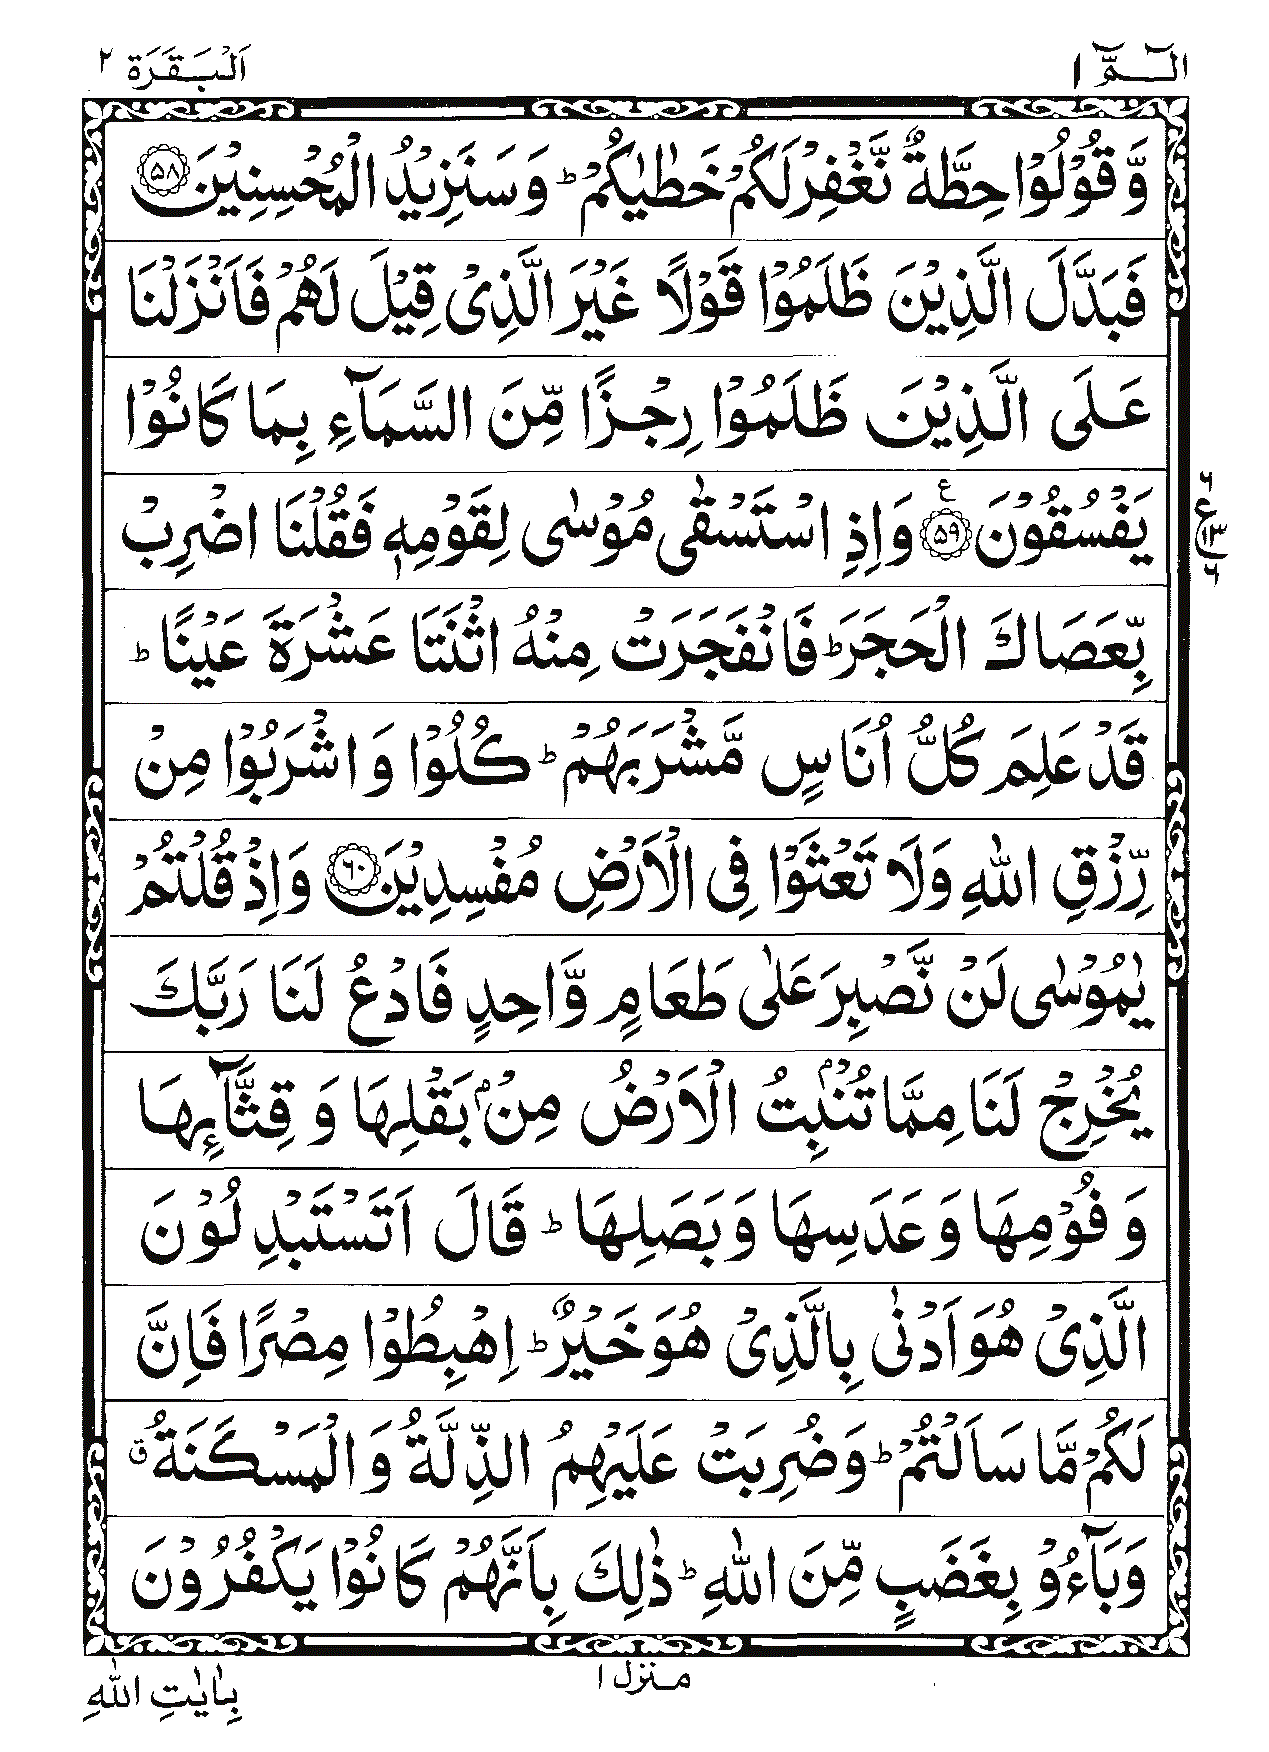 الٓمّٓ ١
اَلْبَقَرَة ٢
وَّقُوْلُوْا حِطَّةٌ نَّغْفِرْ لَكُمْ خَطٰيٰكُمْ ؕ وَسَنَزِيْدُ الْمُحْسِنِيْنَ ۝۵۸
فَبَدَّلَ الَّذِيْنَ ظَلَمُوْا قَوْلًا غَيْرَ الَّذِیْ قِيْلَ لَهُمْ فَاَنْزَلْنَا
عَلَی الَّذِيْنَ ظَلَمُوْا رِجْزًا مِّنَ السَّمَآءِ بِمَا كَانُوْا
يَفْسُقُوْنَ ۝۵۹ وَاِذِ اسْتَسْقٰی مُوْسٰی لِقَوْمِهٖ فَقُلْنَا اضْرِبْ
۶ ع ١٣ ۶
بِّعَصَاكَ الْحَجَرَ ؕ فَانْفَجَرَتْ مِنْهُ اثْنَتَا عَشْرَةَ عَيْنًا ؕ
قَدْ عَلِمَ كُلُّ اُنَاسٍ مَّشْرَبَهُمْ ؕ كُلُوْا وَ اشْرَبُوْا مِنْ
رِّزْقِ اللّٰهِ وَلَا تَعْثَوْا فِی الْاَرْضِ مُفْسِدِيْنَ ۝۶۰ وَاِذْ قُلْتُمْ
يٰمُوْسٰی لَنْ نَّصْبِرَ عَلٰی طَعَامٍ وَّاحِدٍ فَادْعُ لَنَا رَبَّكَ
يُخْرِجْ لَنَا مِمَّا تُنْۢبِتُ الْاَرْضُ مِنْۢ بَقْلِهَا وَ قِثَّآئِهَا
وَ فُوْمِهَا وَ عَدَسِهَا وَ بَصَلِهَا ؕ قَالَ اَتَسْتَبْدِلُوْنَ
الَّذِیْ هُوَ اَدْنٰی بِالَّذِیْ هُوَ خَيْرٌ ؕ اِهْبِطُوْا مِصْرًا فَاِنَّ
لَكُمْ مَّا سَاَلْتُمْ ؕ وَضُرِبَتْ عَلَيْهِمُ الذِّلَّةُ وَ الْمَسْكَنَةُ ۗ
وَبَآءُوْ بِغَضَبٍ مِّنَ اللّٰهِ ؕ ذٰلِكَ بِاَنَّهُمْ كَانُوْا يَكْفُرُوْنَ
منزل ١
بِاٰيٰتِ اللّٰهِ